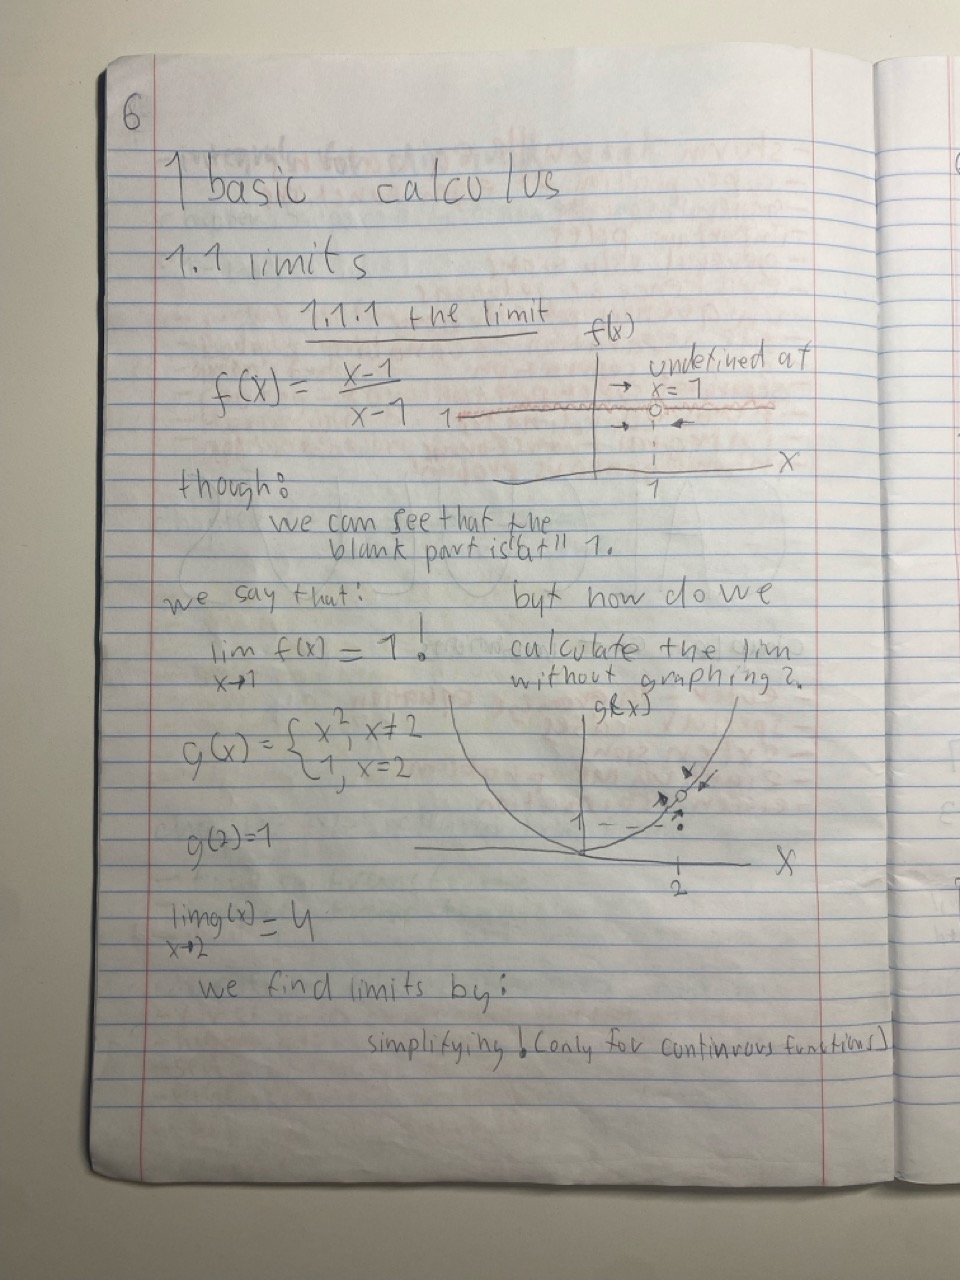 6
1 basic calculus
1.1 limits
1.1.1 the limit
f(x) = x-1 / x-1
f(x)
undefined at
x=1
1
X
1
though:
we can see that the
blank part is "at" 1.
we say that:
lim f(x) = 1!
x→1
but how do we
calculate the lim
without graphing?
g(x) = { x², x≠2
1, x=2
g(x)
1
X
2
g(2)=1
lim g(x) = 4
x→2
we find limits by:
simplifying! (only for continuous functions)